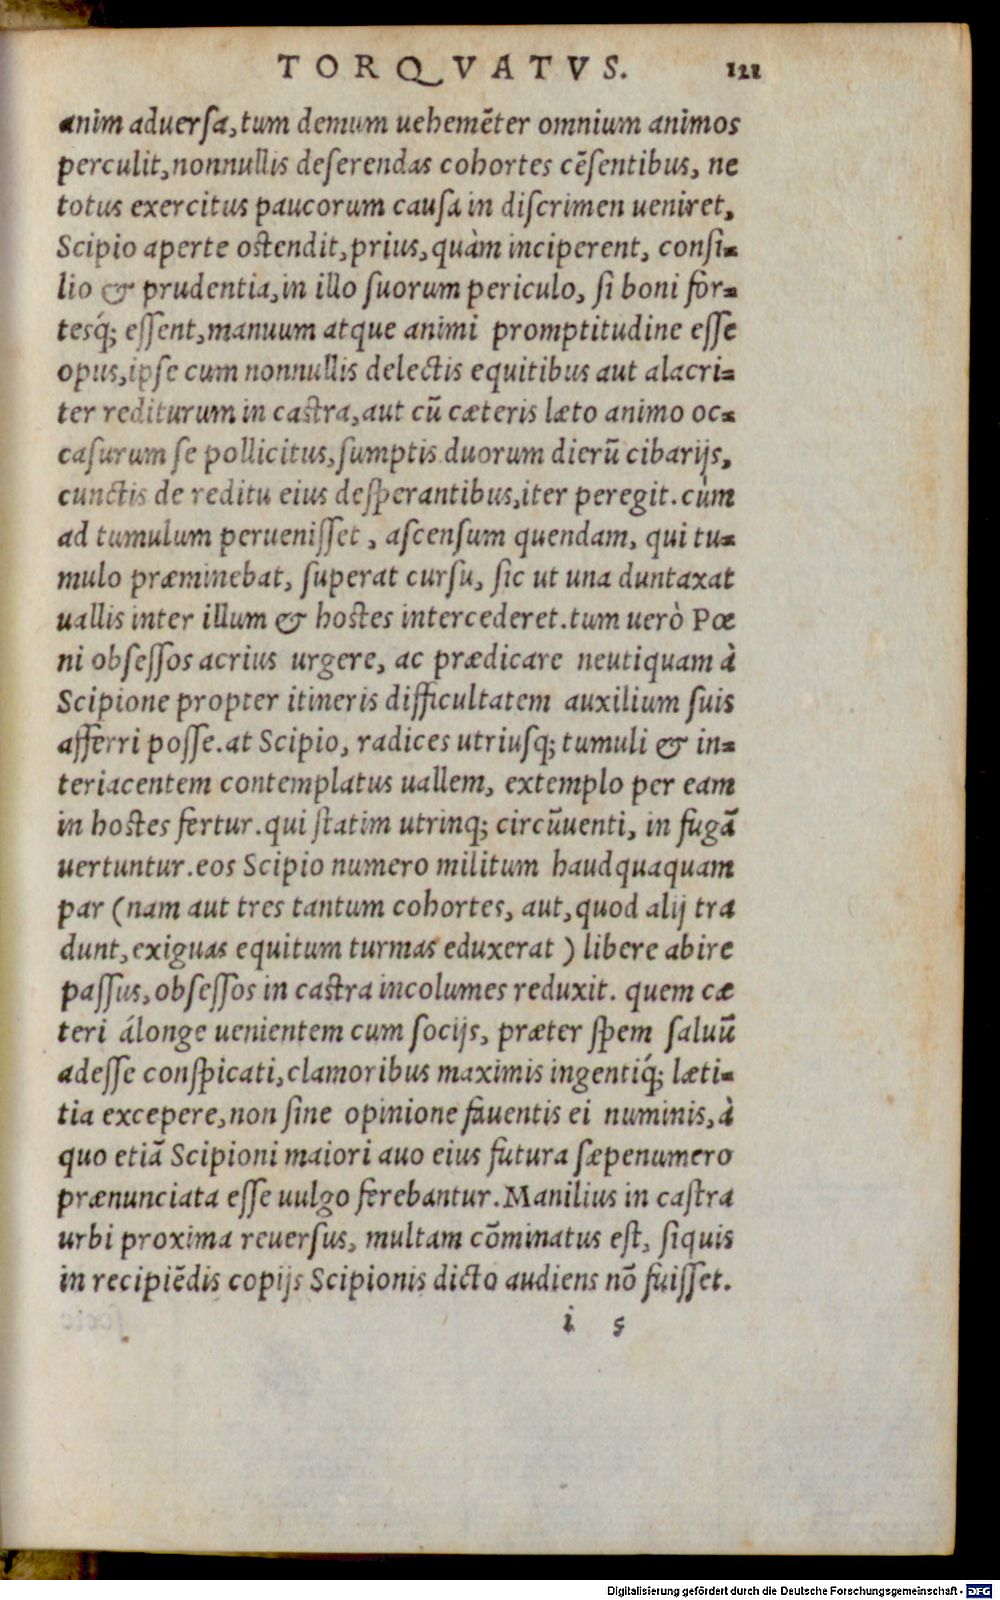 TORQVATVS. 121
anim aduersa, tum demum uehemēter omnium animos
perculit, nonnullis deserendas cohortes cēsentibus, ne
totus exercitus paucorum causa in discrimen ueniret,
Scipio aperte ostendit, prius, quàm inciperent, consi-
lio & prudentia, in illo suorum periculo, si boni for-
tesq́; essent, manuum atque animi promptitudine esse
opus, ipse cum nonnullis delectis equitibus aut alacri-
ter rediturum in castra, aut cū cæteris læto animo oc-
casurum se pollicitus, sumptis duorum dierū cibarijs,
cunctis de reditu eius desperantibus, iter peregit. cùm
ad tumulum peruenisset, ascensum quendam, qui tu-
mulo præminebat, superat cursu, sic ut una duntaxat
uallis inter illum & hostes intercederet. tum uerò Pœ
ni obsessos acrius urgere, ac prædicare neutiquam à
Scipione propter itineris difficultatem auxilium suis
afferri posse. at Scipio, radices utriusq; tumuli & in-
teriacentem contemplatus uallem, extemplo per eam
in hostes fertur. qui statim utrinq; circūuenti, in fugā
uertuntur. eos Scipio numero militum haudquaquam
par (nam aut tres tantum cohortes, aut, quod alij tra
dunt, exiguas equitum turmas eduxerat) libere abire
passus, obsessos in castra incolumes reduxit. quem cæ
teri álonge uenientem cum socijs, præter spem saluū
adesse conspicati, clamoribus maximis ingentiq́; læti-
tia excepere, non sine opinione fauentis ei numinis, à
quo etiā Scipioni maiori auo eius futura sæpenumero
prænunciata esse uulgo ferebantur. Manilius in castra
urbi proxima reuersus, multam cōminatus est, siquis
in recipiēdis copijs Scipionis dicto audiens nō fuisset.
i 5
Digitalisierung gefördert durch die Deutsche Forschungsgemeinschaft - DFG